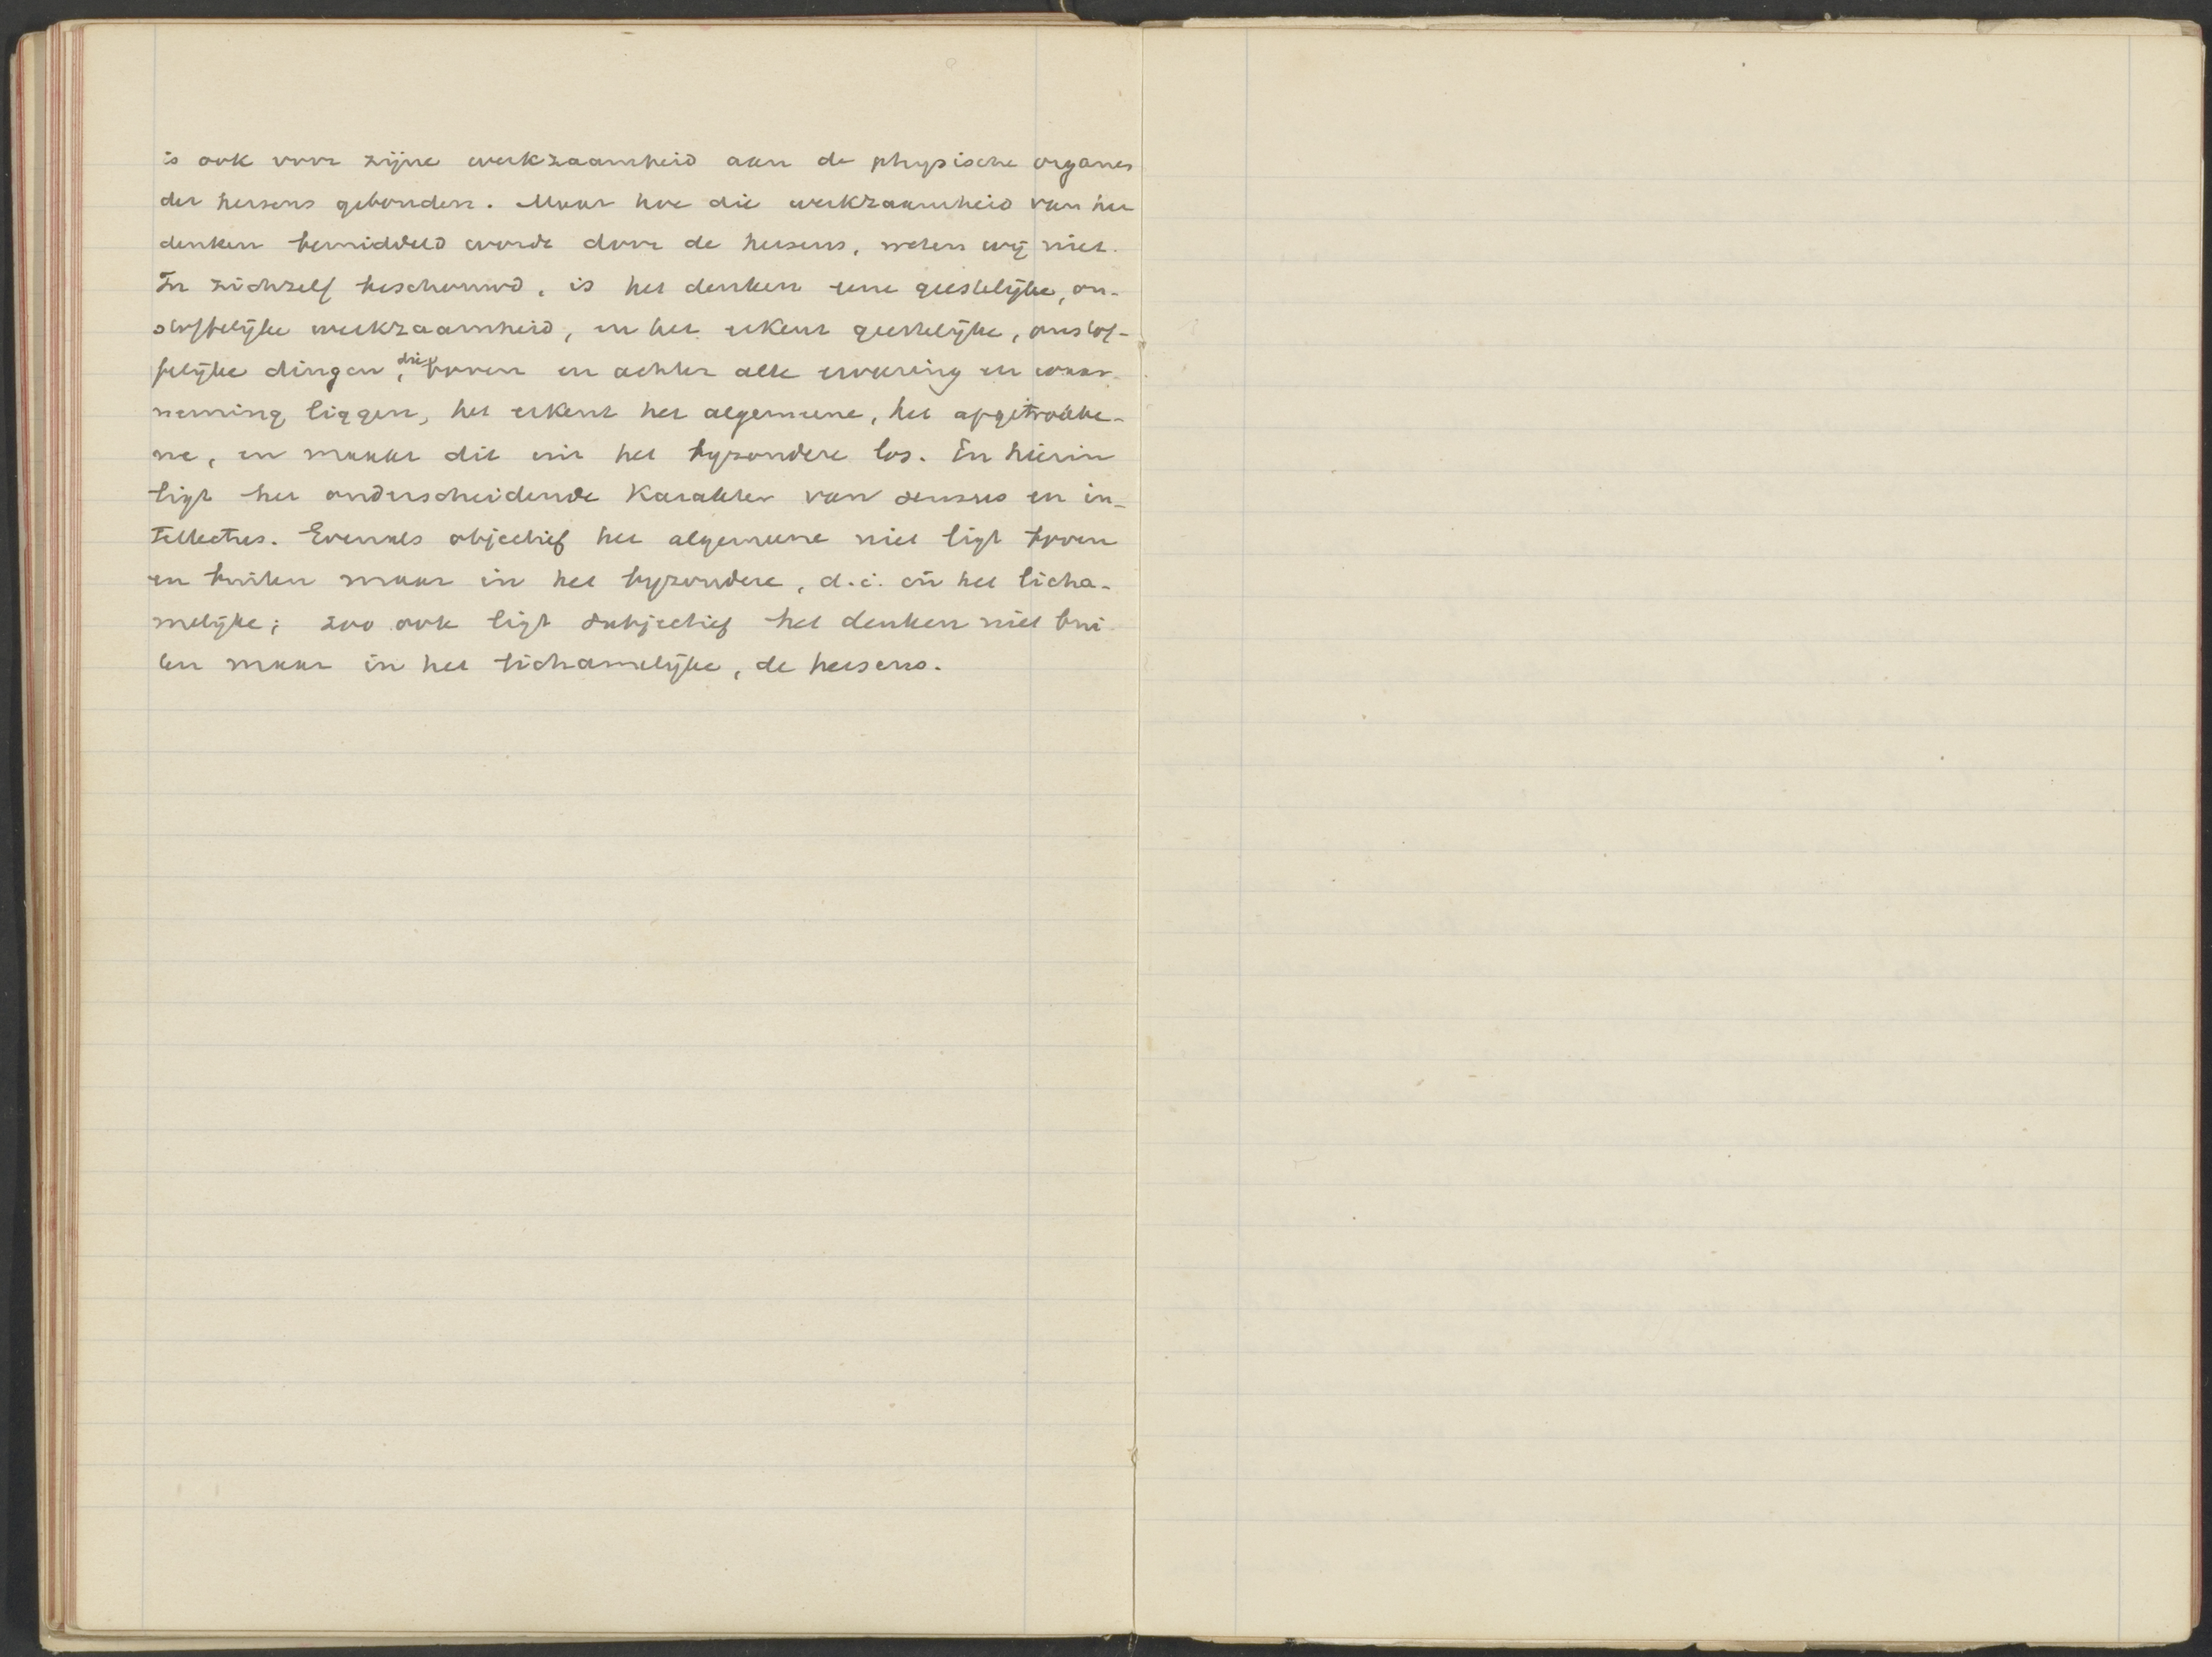 is ook voor zijne werkzaamheid aan de physische organen
der hersens gebonden. Maar hoe die werkzaamheid van het
denken bemiddeld worde door de hersens, weten wij niet.
In zichzelf beschouwd, is het denken eene geestelijke, on-
stoffelijke werkzaamheid, en het erkent geestelijke, onstof-
felijke dingen, die boven en achter alle ervaring en waar-
neming liggen, het erkent het algemeene, het afgetrokke-
ne, en maakt dit uit het byzondere los. En hierin
ligt het onderscheidende karakter van sensus en in-
tellectus. Evenals objectief het algemeene niet ligt boven
en buiten maar in het byzondere, d.i. in het licha-
melijke; zoo ook ligt subjectief het denken niet bui-
ten maar in het lichamelijke, de hersens.